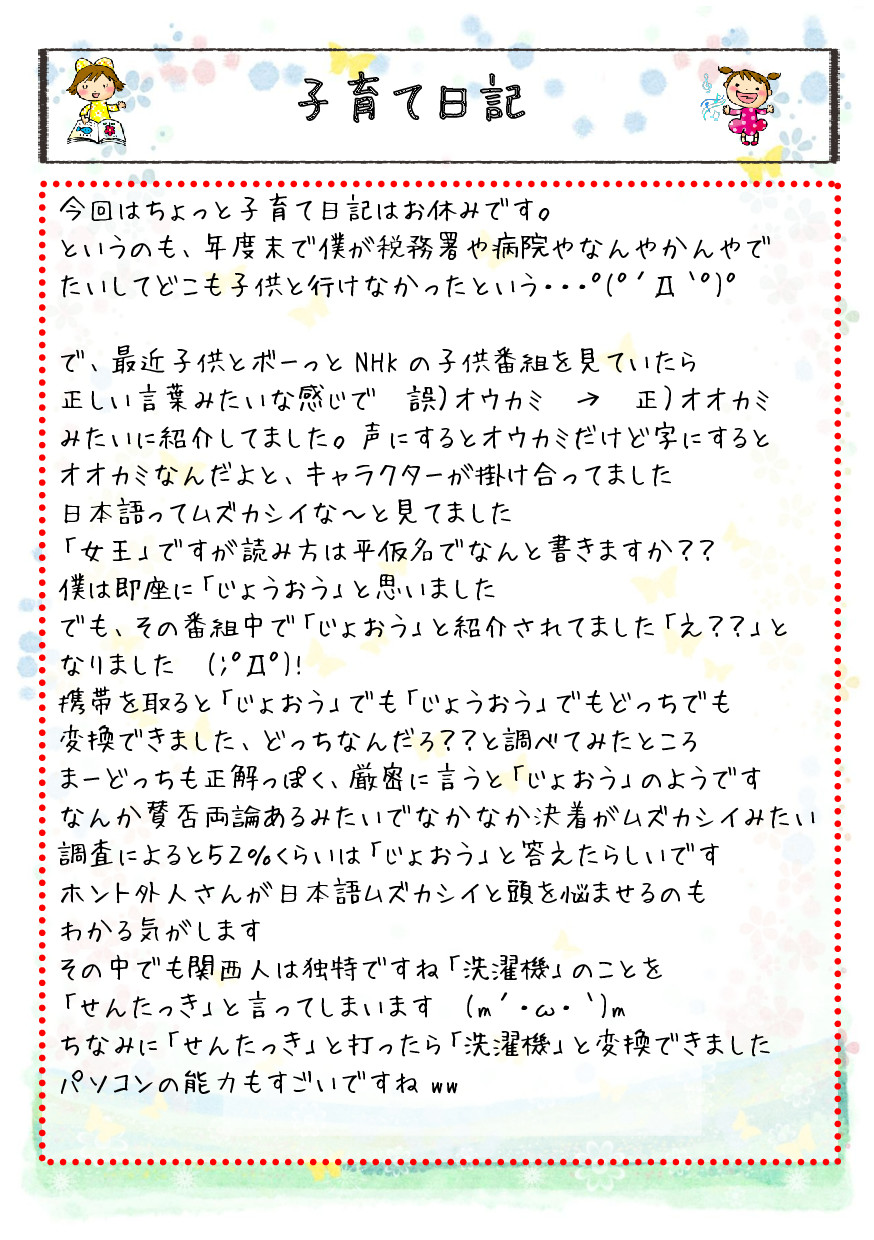 子育て日記
今回はちょっと子育て日記はお休みです。
というのも、年度末で僕が税務署や病院やなんやかんやで
たいしてどこも子供と行けなかったという・・・º(º´Д`º)º
で、最近子供とボーっとNHKの子供番組を見ていたら
正しい言葉みたいな感じで　誤)オウカミ　→　正)オオカミ
みたいに紹介してました。声にするとオウカミだけど字にすると
オオカミなんだよと、キャラクターが掛け合ってました
日本語ってムズカシイな～と見てました
「女王」ですが読み方は平仮名でなんと書きますか??
僕は即座に「じょうおう」と思いました
でも、その番組中で「じょおう」と紹介されてました「え??」と
なりました　(;ºДº)!
携帯を取ると「じょおう」でも「じょうおう」でもどっちでも
変換できました、どっちなんだろ??と調べてみたところ
まーどっちも正解っぽく、厳密に言うと「じょおう」のようです
なんか賛否両論あるみたいでなかなか決着がムズカシイみたい
調査によると52%くらいは「じょおう」と答えたらしいです
ホント外人さんが日本語ムズカシイと頭を悩ませるのも
わかる気がします
その中でも関西人は独特ですね「洗濯機」のことを
「せんたっき」と言ってしまいます　(m´・ω・`)m
ちなみに「せんたっき」と打ったら「洗濯機」と変換できました
パソコンの能力もすごいですねww